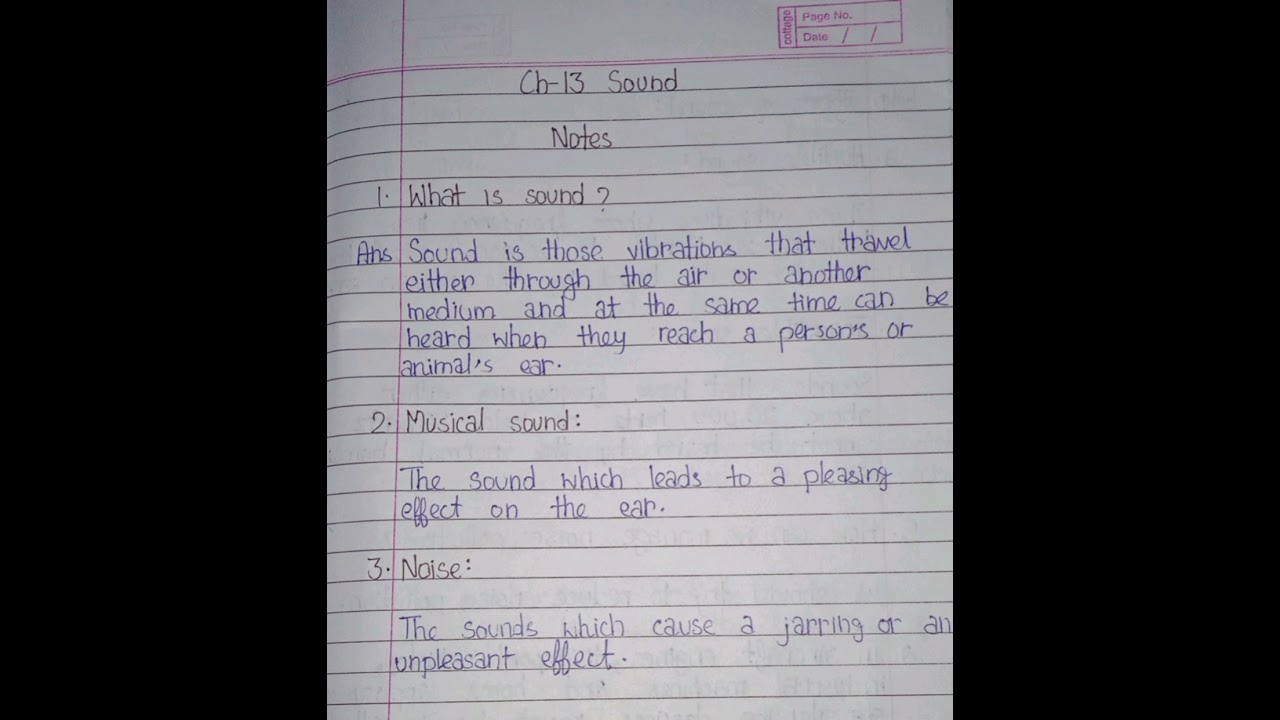 cottage
Page No.
Date / /
Ch-13 Sound
Notes
1. What is sound?
Ans Sound is those vibrations that travel
either through the air or another
medium and at the same time can be
heard when they reach a person's or
animal's ear.
2. Musical sound:
The sound which leads to a pleasing
effect on the ear.
3. Noise:
The sounds which cause a jarring or an
unpleasant effect.